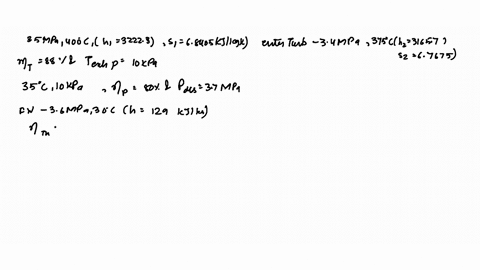 35MPa, 400°C, (h₁=3222.3), s₁=6.8405kJ/kgk) enter Turb - 3.4MPa, 375°C (h₂=3165.7,
s₂=6.7675)
ηT = 88% & Texh p = 10kPa
35°C, 10kPa, ηp = 80% & Pdis = 3.7MPa
- 3.6MPa, 30°C (h = 129 kJ/kg)
ηTh